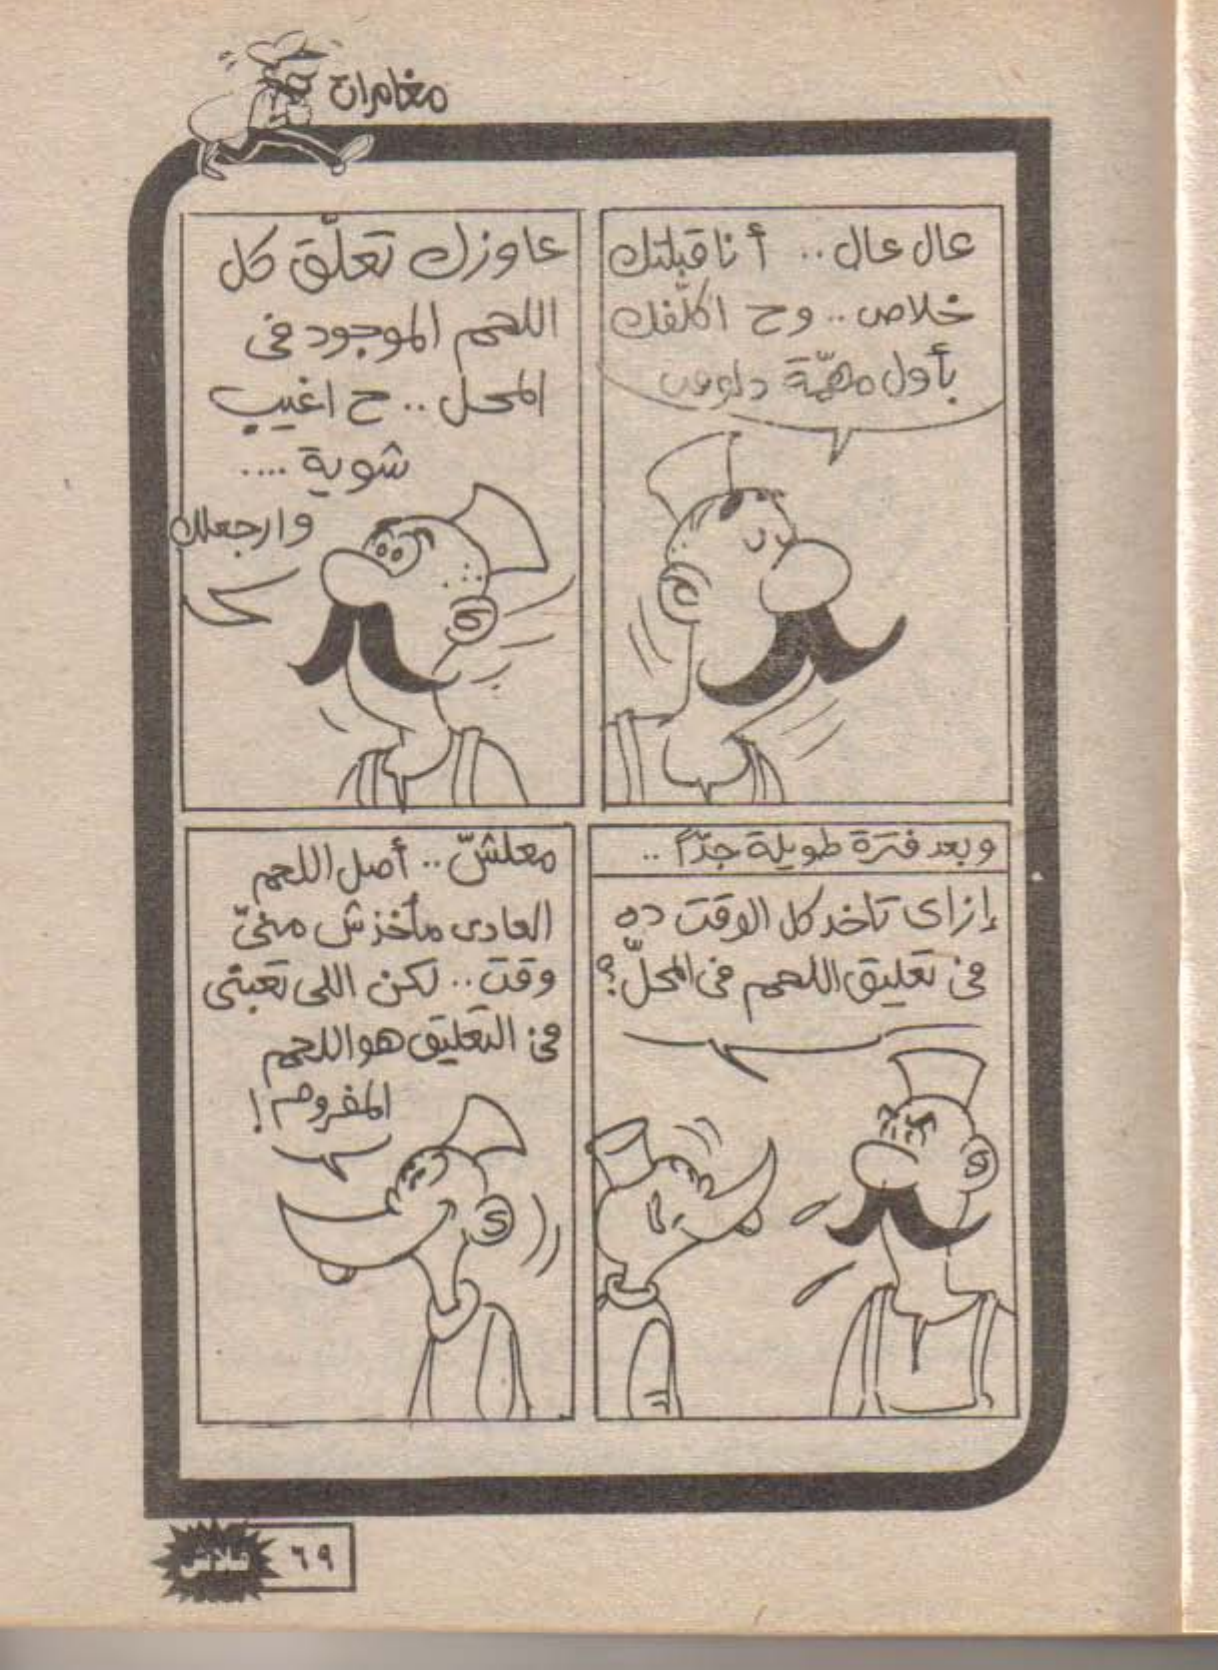 مغامرات
عال عال.. أنا قبلتك
خلاص.. وح اكلّفك
بأول مهمّة دلوقت
عاوزك تعلّق كل
اللحم الموجود فى
المحل.. ح اغيب
شوية ....
وارجعلك
وبعد فترة طويلة جدًّا ..
إزاى تاخد كل الوقت ده
فى تعليق اللحم فى المحلّ؟
معلشّ.. أصل اللحم
العادى مأخذش منىّ
وقت.. لكن اللى تعبنى
فى التعليق هو اللحم
المفروم!
فلاش ٦٩